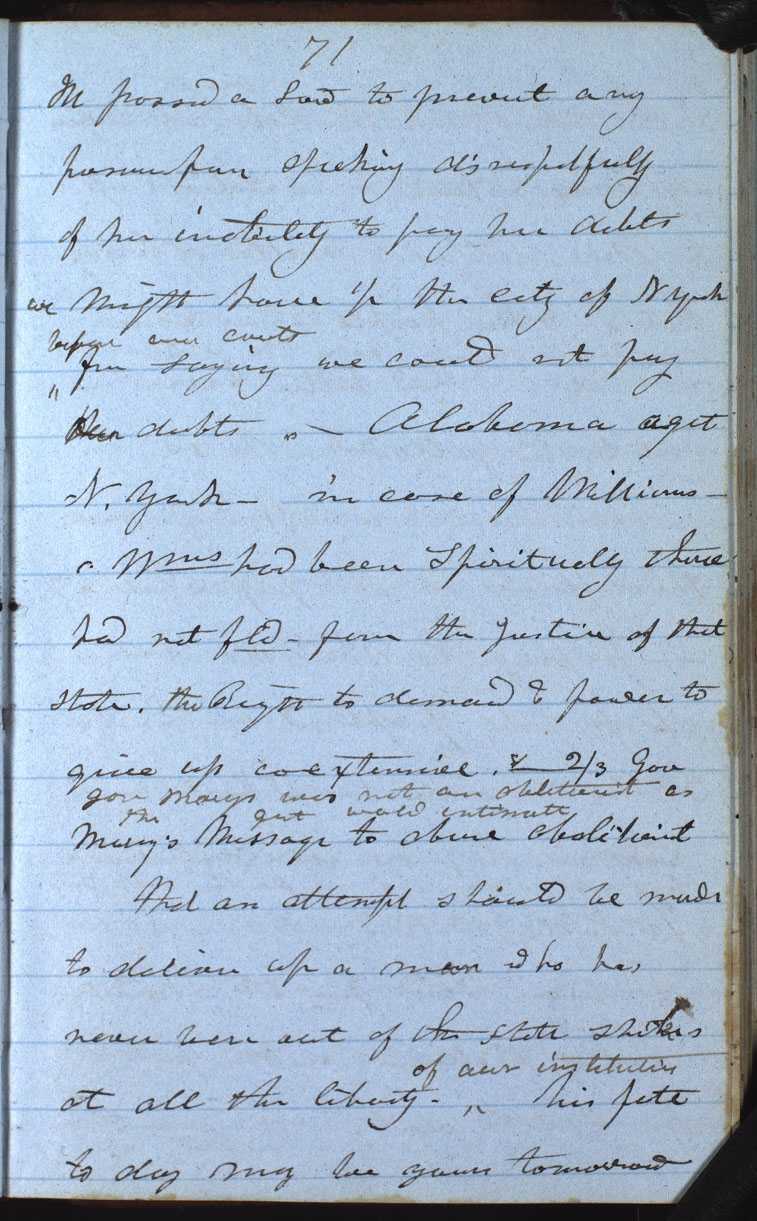 71
M passed a Law to prevent any
person from speking disrespectfully
of her inability to pay her debts
we might have up the city of N York
before our courts
for saying we could not pay
debts " — Alabama aget
N. York — in case of Williams —
Wms had been Spiritually there
had not fled — from the Justice of that
State. the Right to demand & power to
give up coextensive. & 2/3 Gov
gov Marcy was not an abolitionist as
the Gut would intimate
Marcy's Message to abuse abolitionist
that an attempt should be made
to deliver up a man who has
never been out of the state strikes
of our institution
at all the liberty - ^ his fate
to day may be yours tomorrow